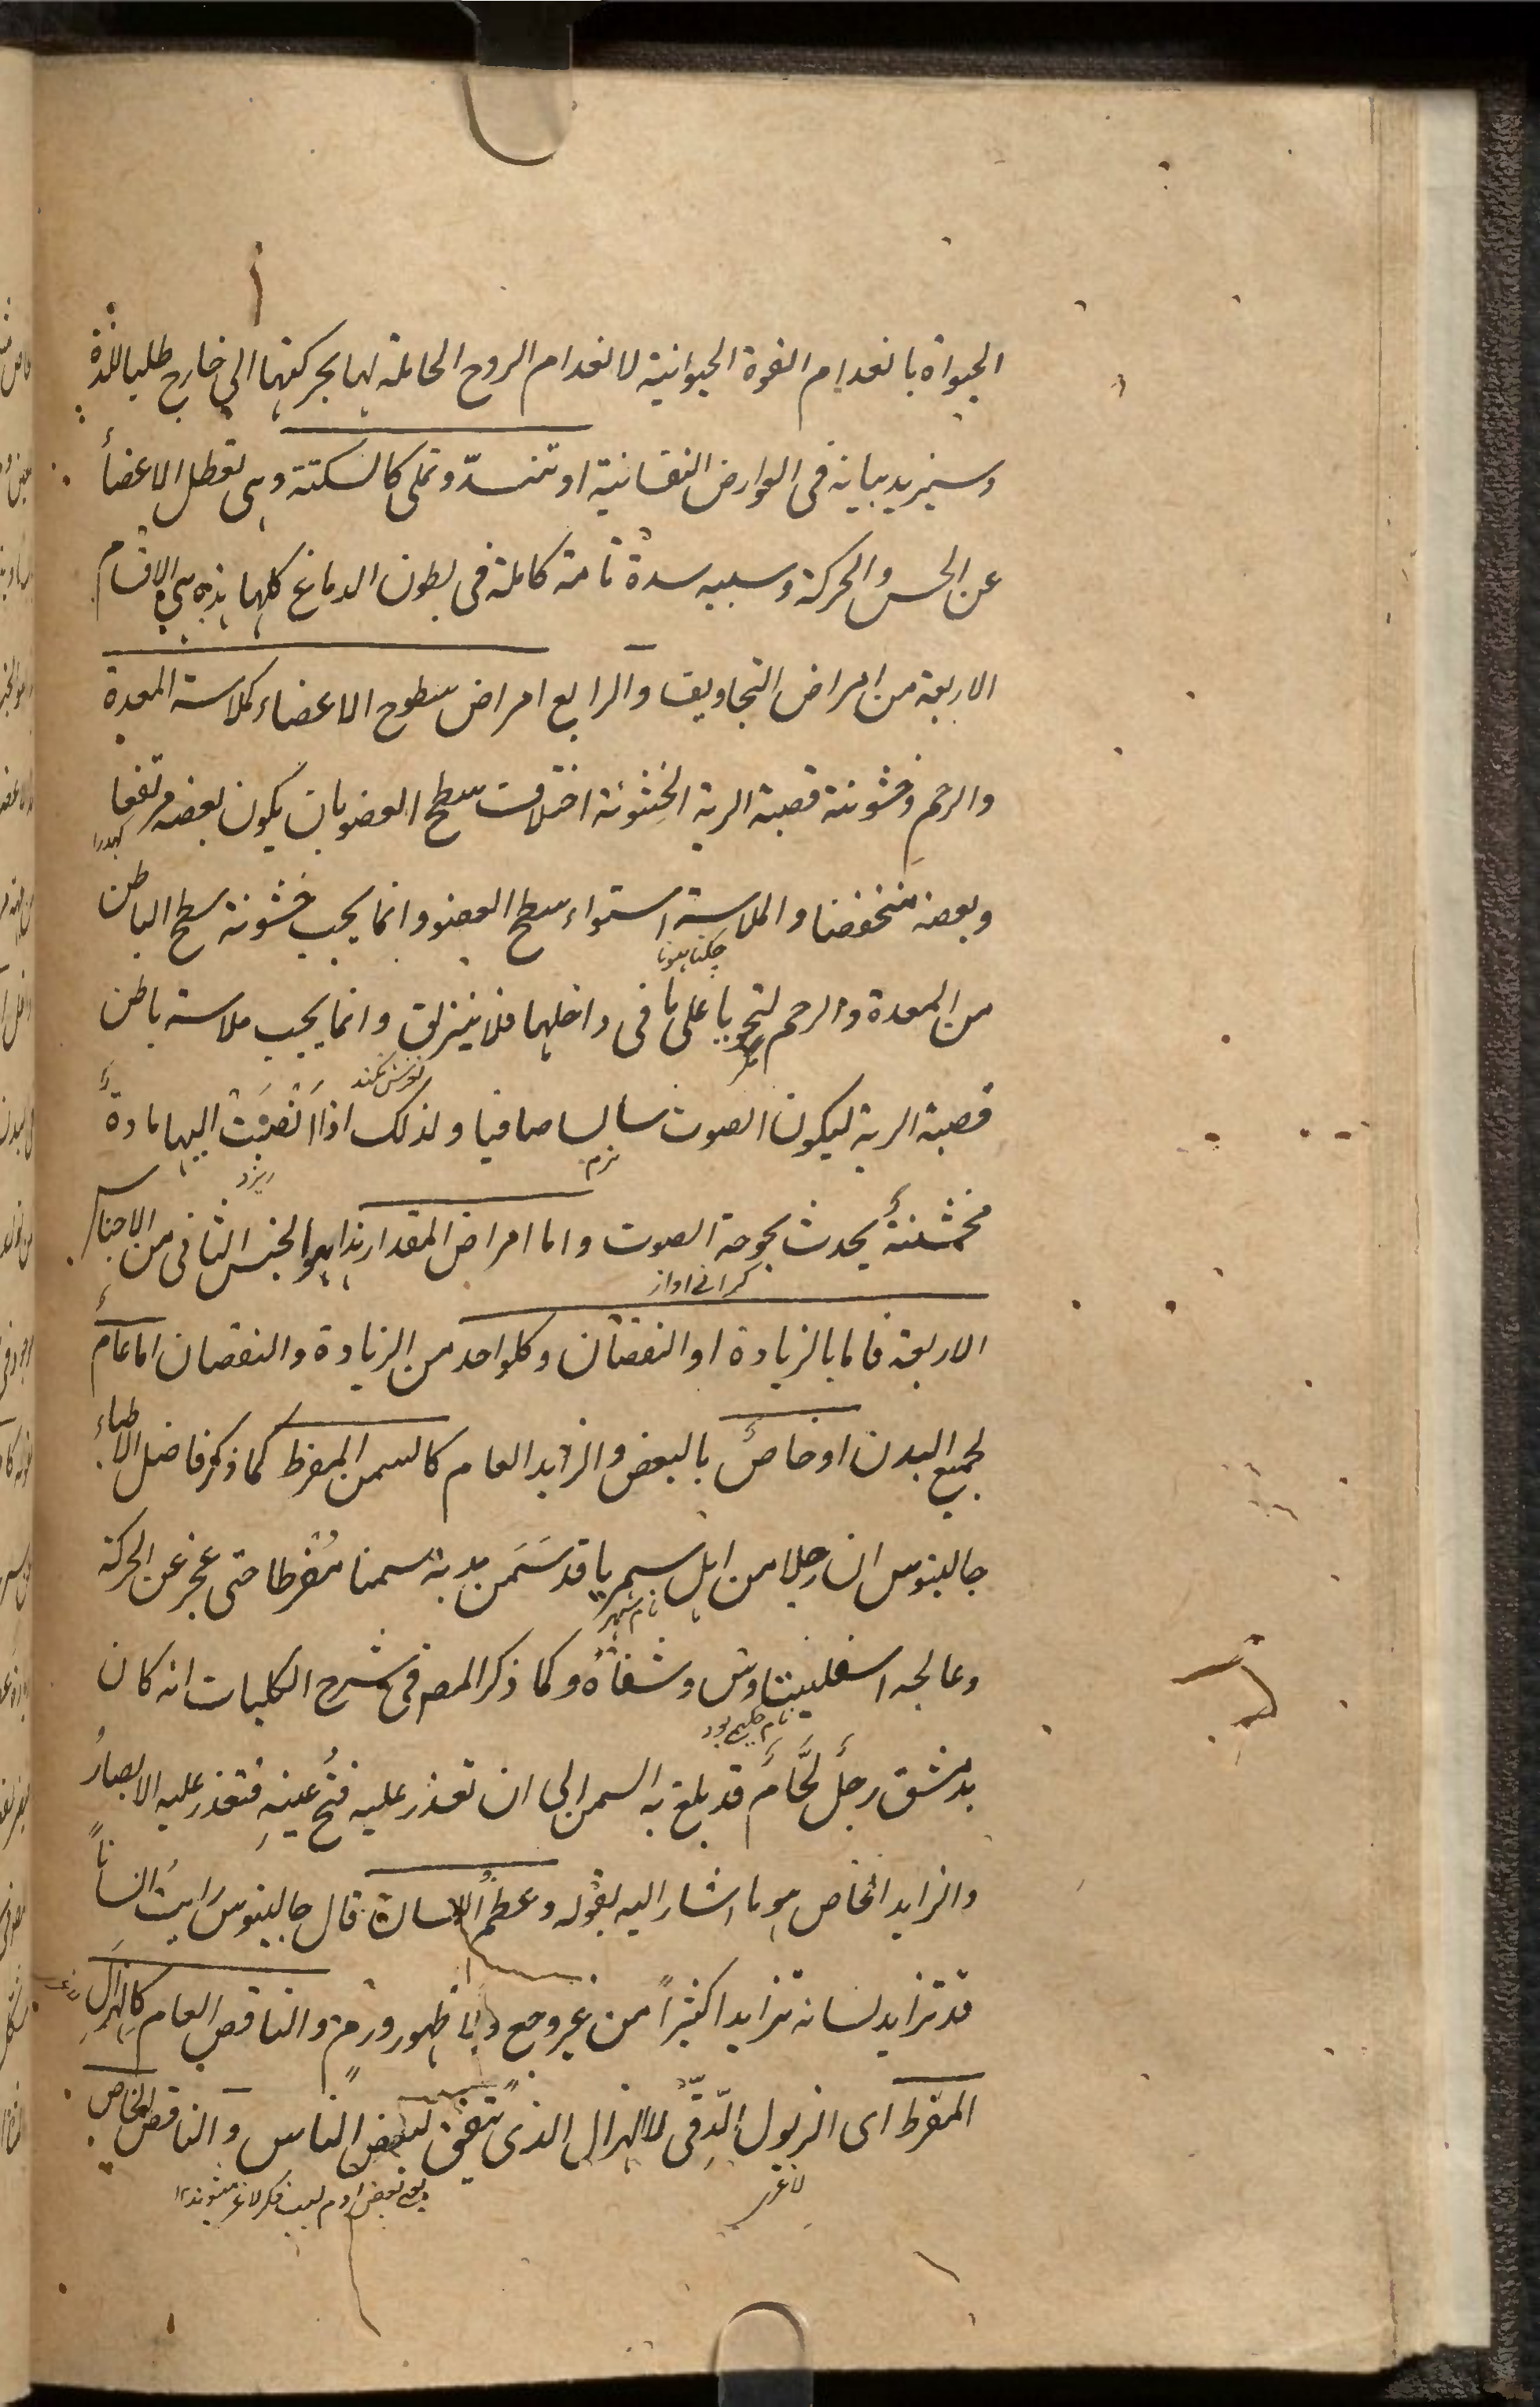 الحيواة بانعدام القوة الحيوانية لانعدام الروح الحاملة لها بحركتها الى خارج طلبا للذة
وسيزيد بيانه فى العوارض النفسانية او تنسدّ وتملى كالسكتة وهى تعطل الاعضاء
عن الحس والحركة وسببه سدة تامة كاملة فى بطون الدماغ كلها هذه هى الاقسام
الاربعة من امراض التجاويف والرابع امراض سطوح الاعضاء كملاسة المعدة
والرحم وخشونة قصبة الرية الخشونة اختلاف سطح العضو بان يكون بعضه مرتفعا
كهدرا
وبعضه منخفضا والملاسة استواء سطح العضو وانما يجب خشونة سطح الباطن
چکنا ہونا
من المعدة والرحم لتحويا على ما فى داخلهما فلا ينزلق وانما يجب ملاسة باطن
قصبة الرية ليكون الصوت سالسا صافيا ولذلك اذا انصبت اليها مادةٌ
نرم ریزد
مخشنةٌ يحدث بحوحة الصوت واما امراض المقدار هذا هو الجنس الثانى من الاجناس
گرانے اواز
الاربعة فاما بالزيادة او النقصان وكلواحد من الزيادة والنقصان اما عامٌ
لجميع البدن او خاصٌ بالبعض والزايد العام كالسمن المفرط كما ذكر فاضل الاطباء
جالينوس ان رجلا من اهل سميريا قد سَمَن بدنه سمنا مُفرطا حتى عجز عن الحركة
نام شهر
وعالجه اسقلينياوس وشفاهُ وكما ذكر المصـ فى شرح الكليات انه كان
نام حکیم بود
بدمشق رجلٌ لحَّامٌ قد بلغ به السمن الى ان تعذر عليه فتحُ عينهِ فتعذر عليه الابصارُ
والزايد الخاص هو ما اشار اليه بقوله وعظمُ اللسان قال جالينوس رايتُ انساناً
قد تزايد لسانه تزايدا كثيراً من غير وجع ولا ظهور ورم والناقص العام كالهزالِ
المفرط اى الذبول الدِّقىّ لا الهزال الذى يتفق لبعض الناس والناقص الخاص
لاغری
یعنی بعض ادم بسبب فکر لاغر میشوند ۱۲